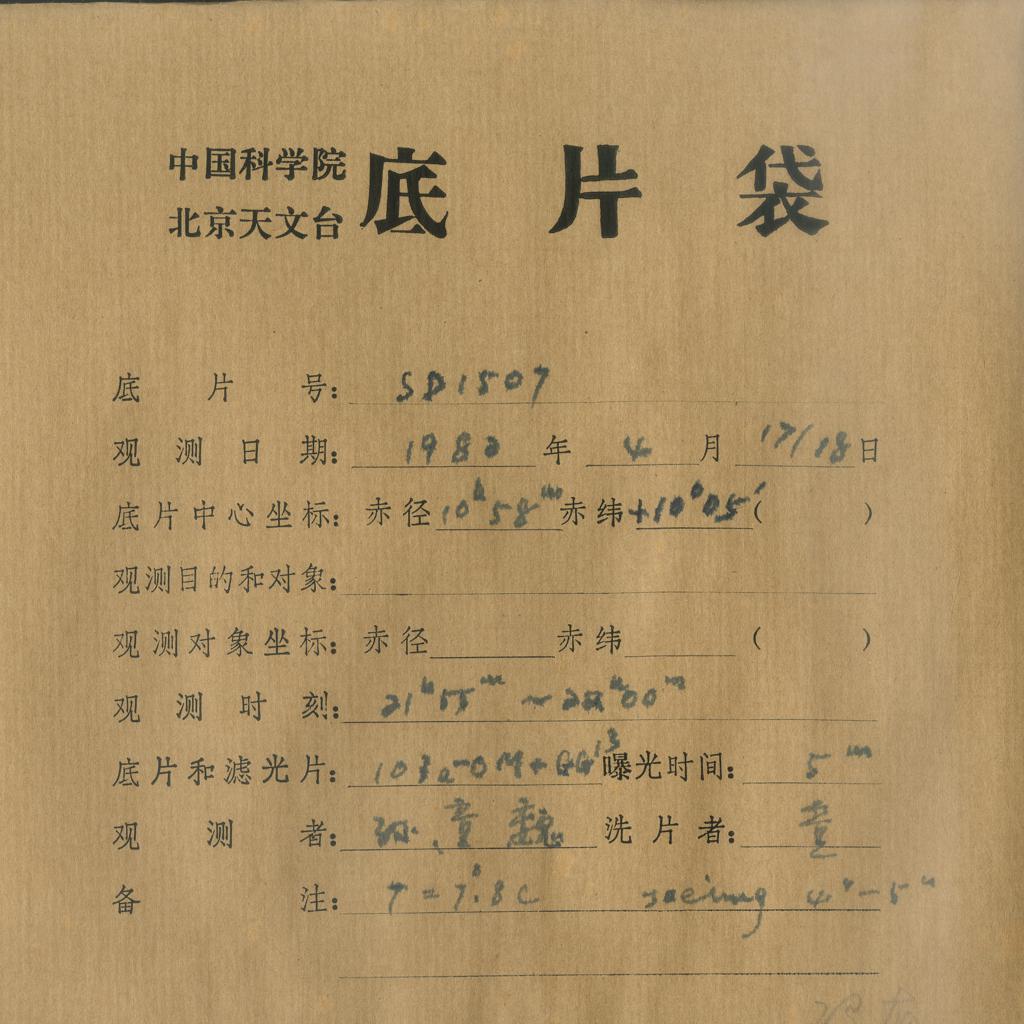 中国科学院
北京天文台
底片袋
底片号：SD1507
观测日期：1982年4月17/18日
底片中心坐标：赤径10ʰ58ᵐ赤纬+10°05′( )
观测目的和对象：
观测对象坐标：赤径 赤纬 ( )
观测时刻：21ʰ55ᵐ～22ʰ00ᵐ
底片和滤光片：103a-OM+GG13 曝光时间：5ᵐ
观测者：孙、童 魏 洗片者：童
备注：T=7.°8C seeing 4"-5"